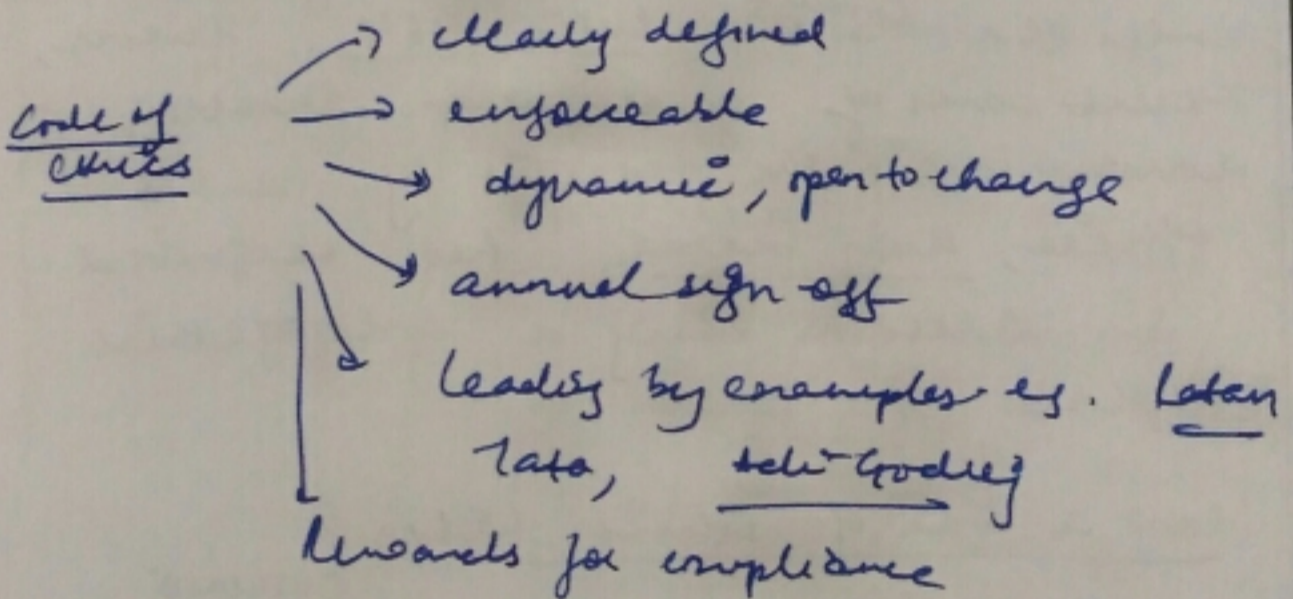 Code of
Ethics
clearly defined
enforceable
dynamic, open to change
annual sign off
leading by examples eg. Ratan
Tata, Adi Godrej
Rewards for compliance